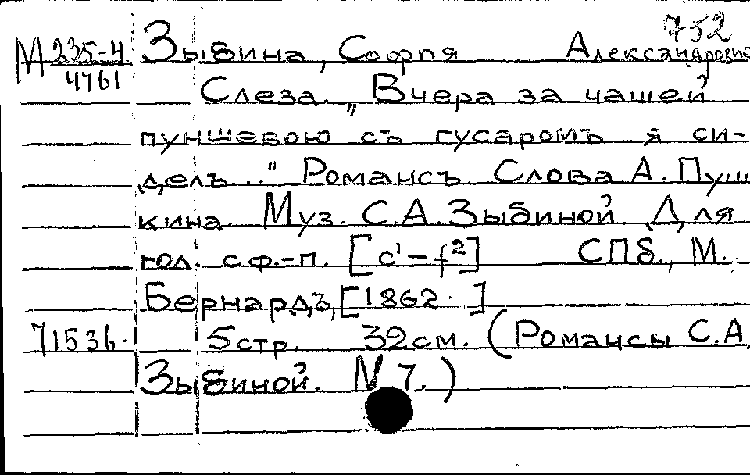 752
М 235-4 Зыбина, Софья Александровна
4761
Слеза. „Вчера за чашей
пуншевою съ гусаромъ я си-
делъ..." Романсъ Слова А. Пуш
кина Муз. С.А. Зыбиной. Для
гол. с ф.-п. [c¹-f²] СПб., М.
Бернардъ, [1862.]
71536. 5 стр. 32 см. (Романсы С.А.
Зыбиной. N 7.)